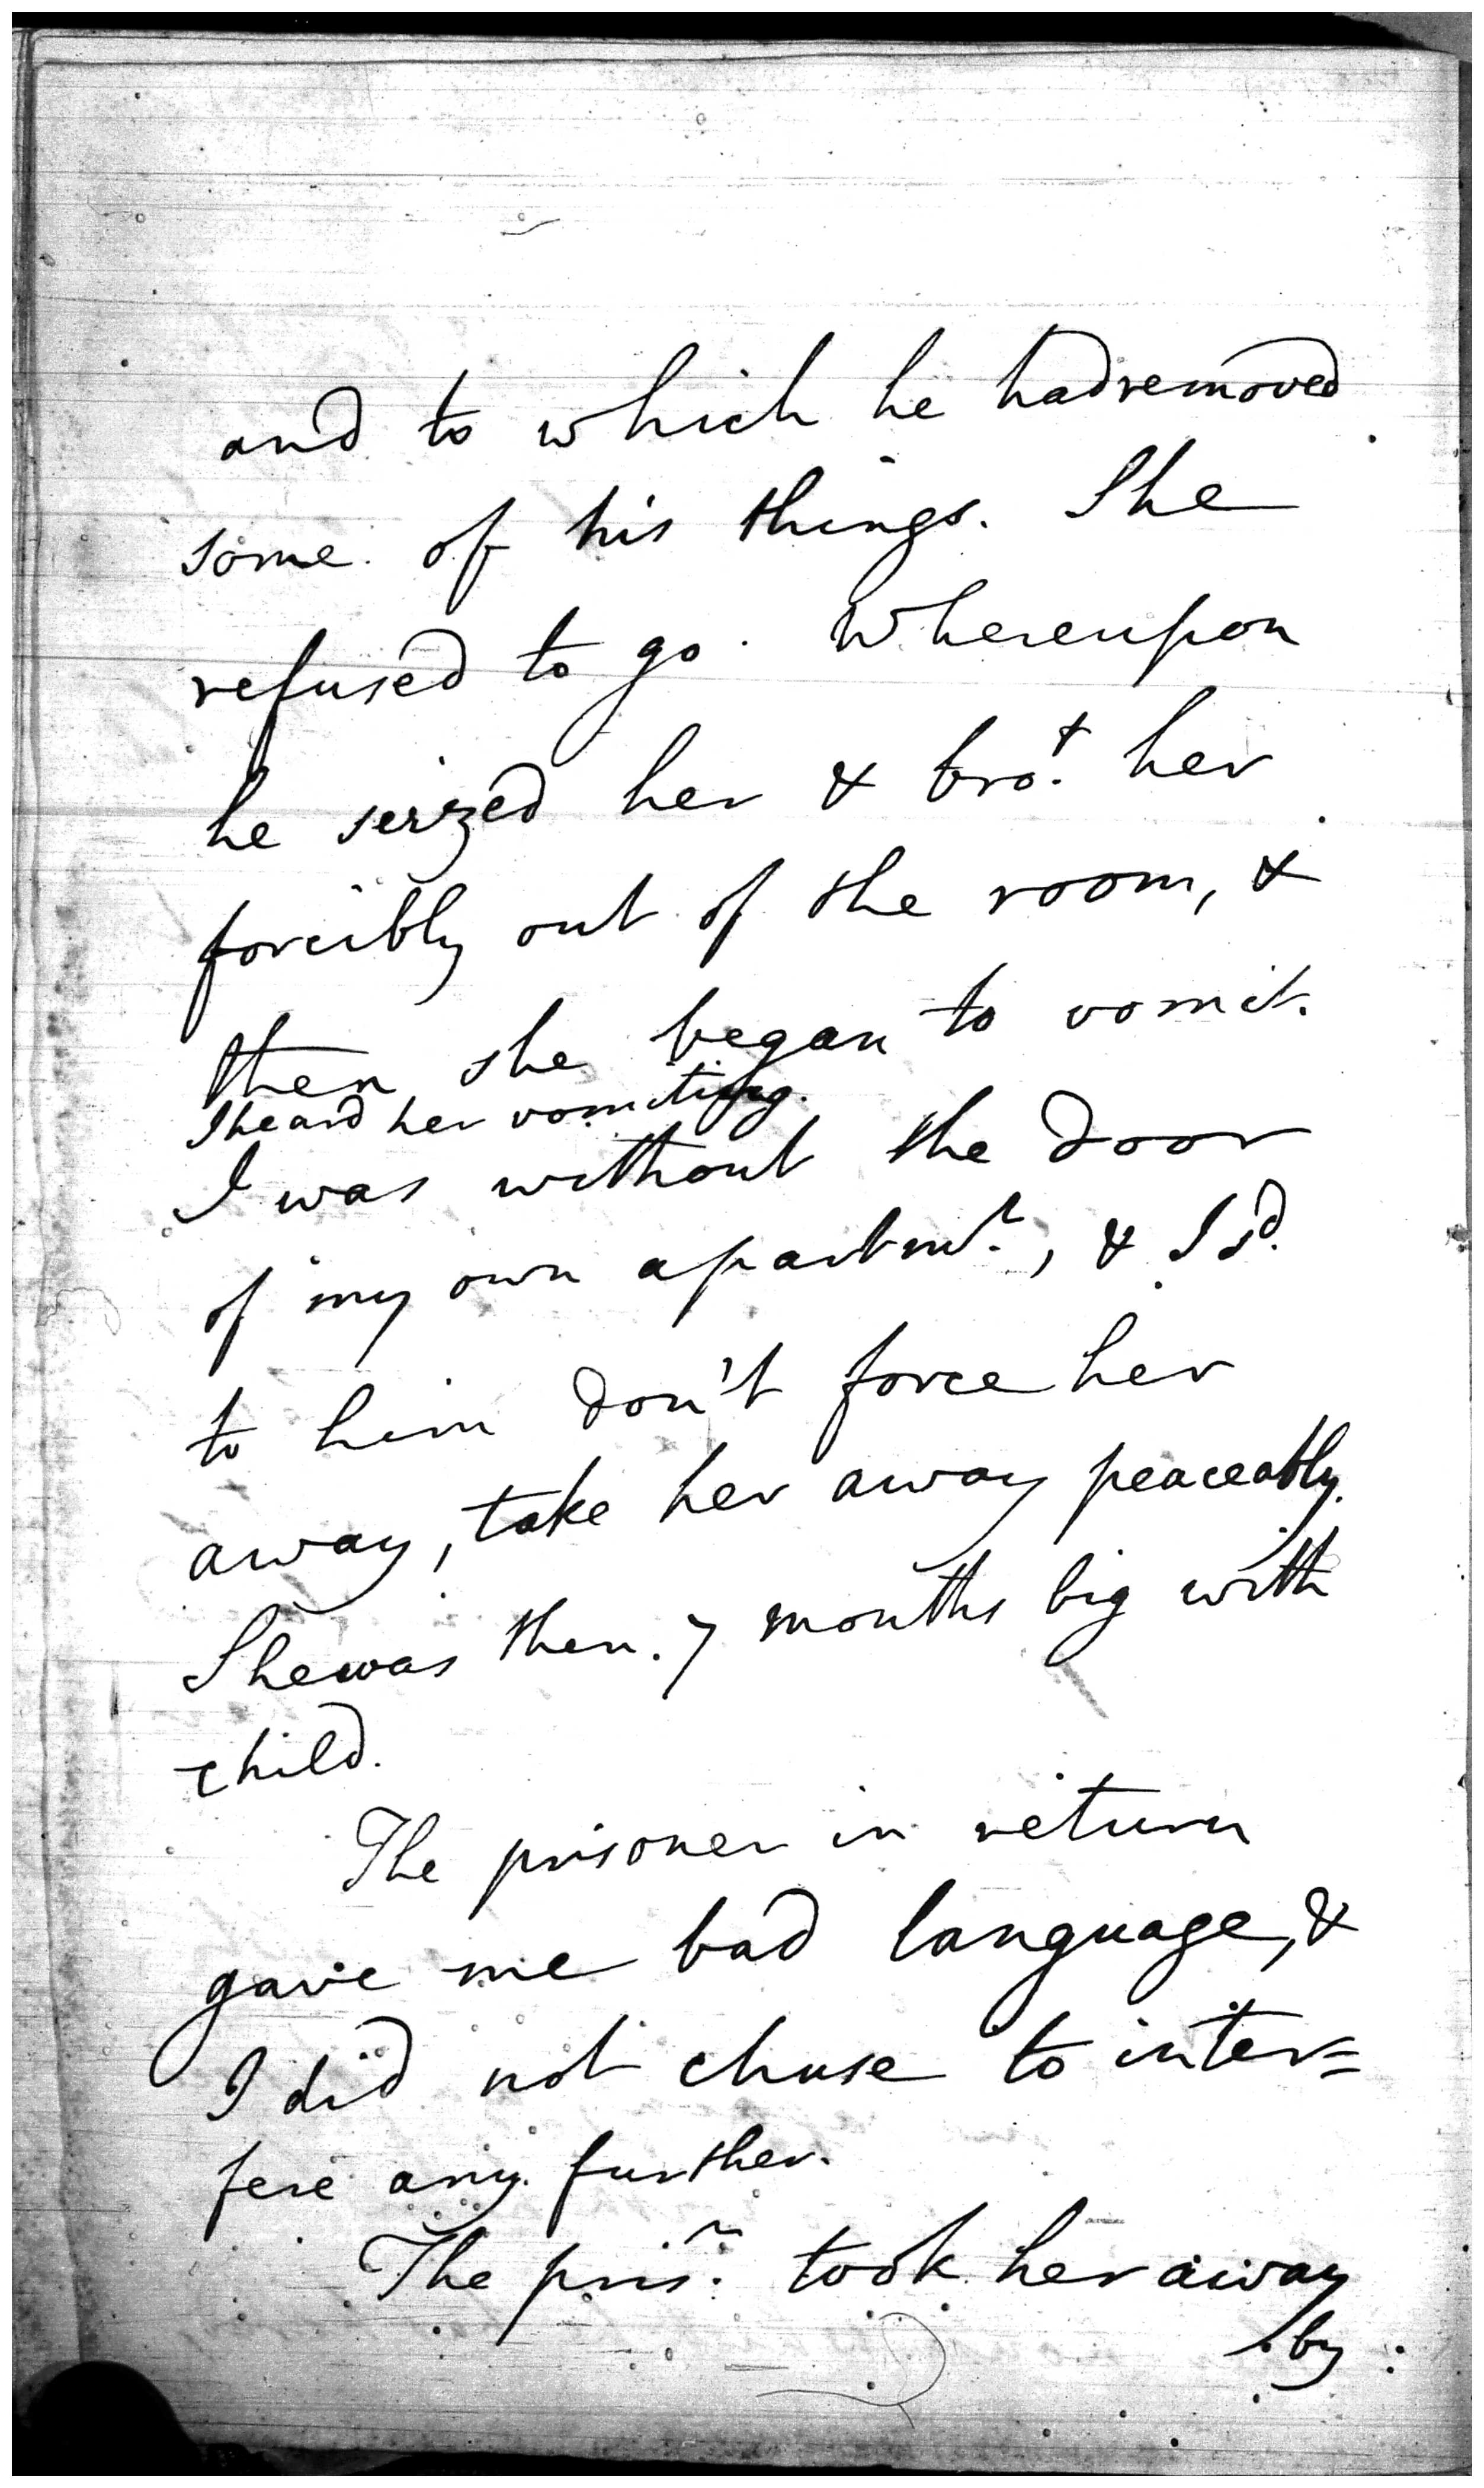 and to which he had removed
some of his things. She
refused to go. Whereupon
he seized her & bro.t her
forcibly out of the room, &
then she began to vomit.
I heard her vomiting.
I was without the door
of my own apartm.t, & I s.d
to him don't force her
away, take her away peaceably.
She was then 7 months big with
child.
The prisoner in return
gave me bad language, &
I did not chuse to inter=
fere any further.
The pris.r took her away
by